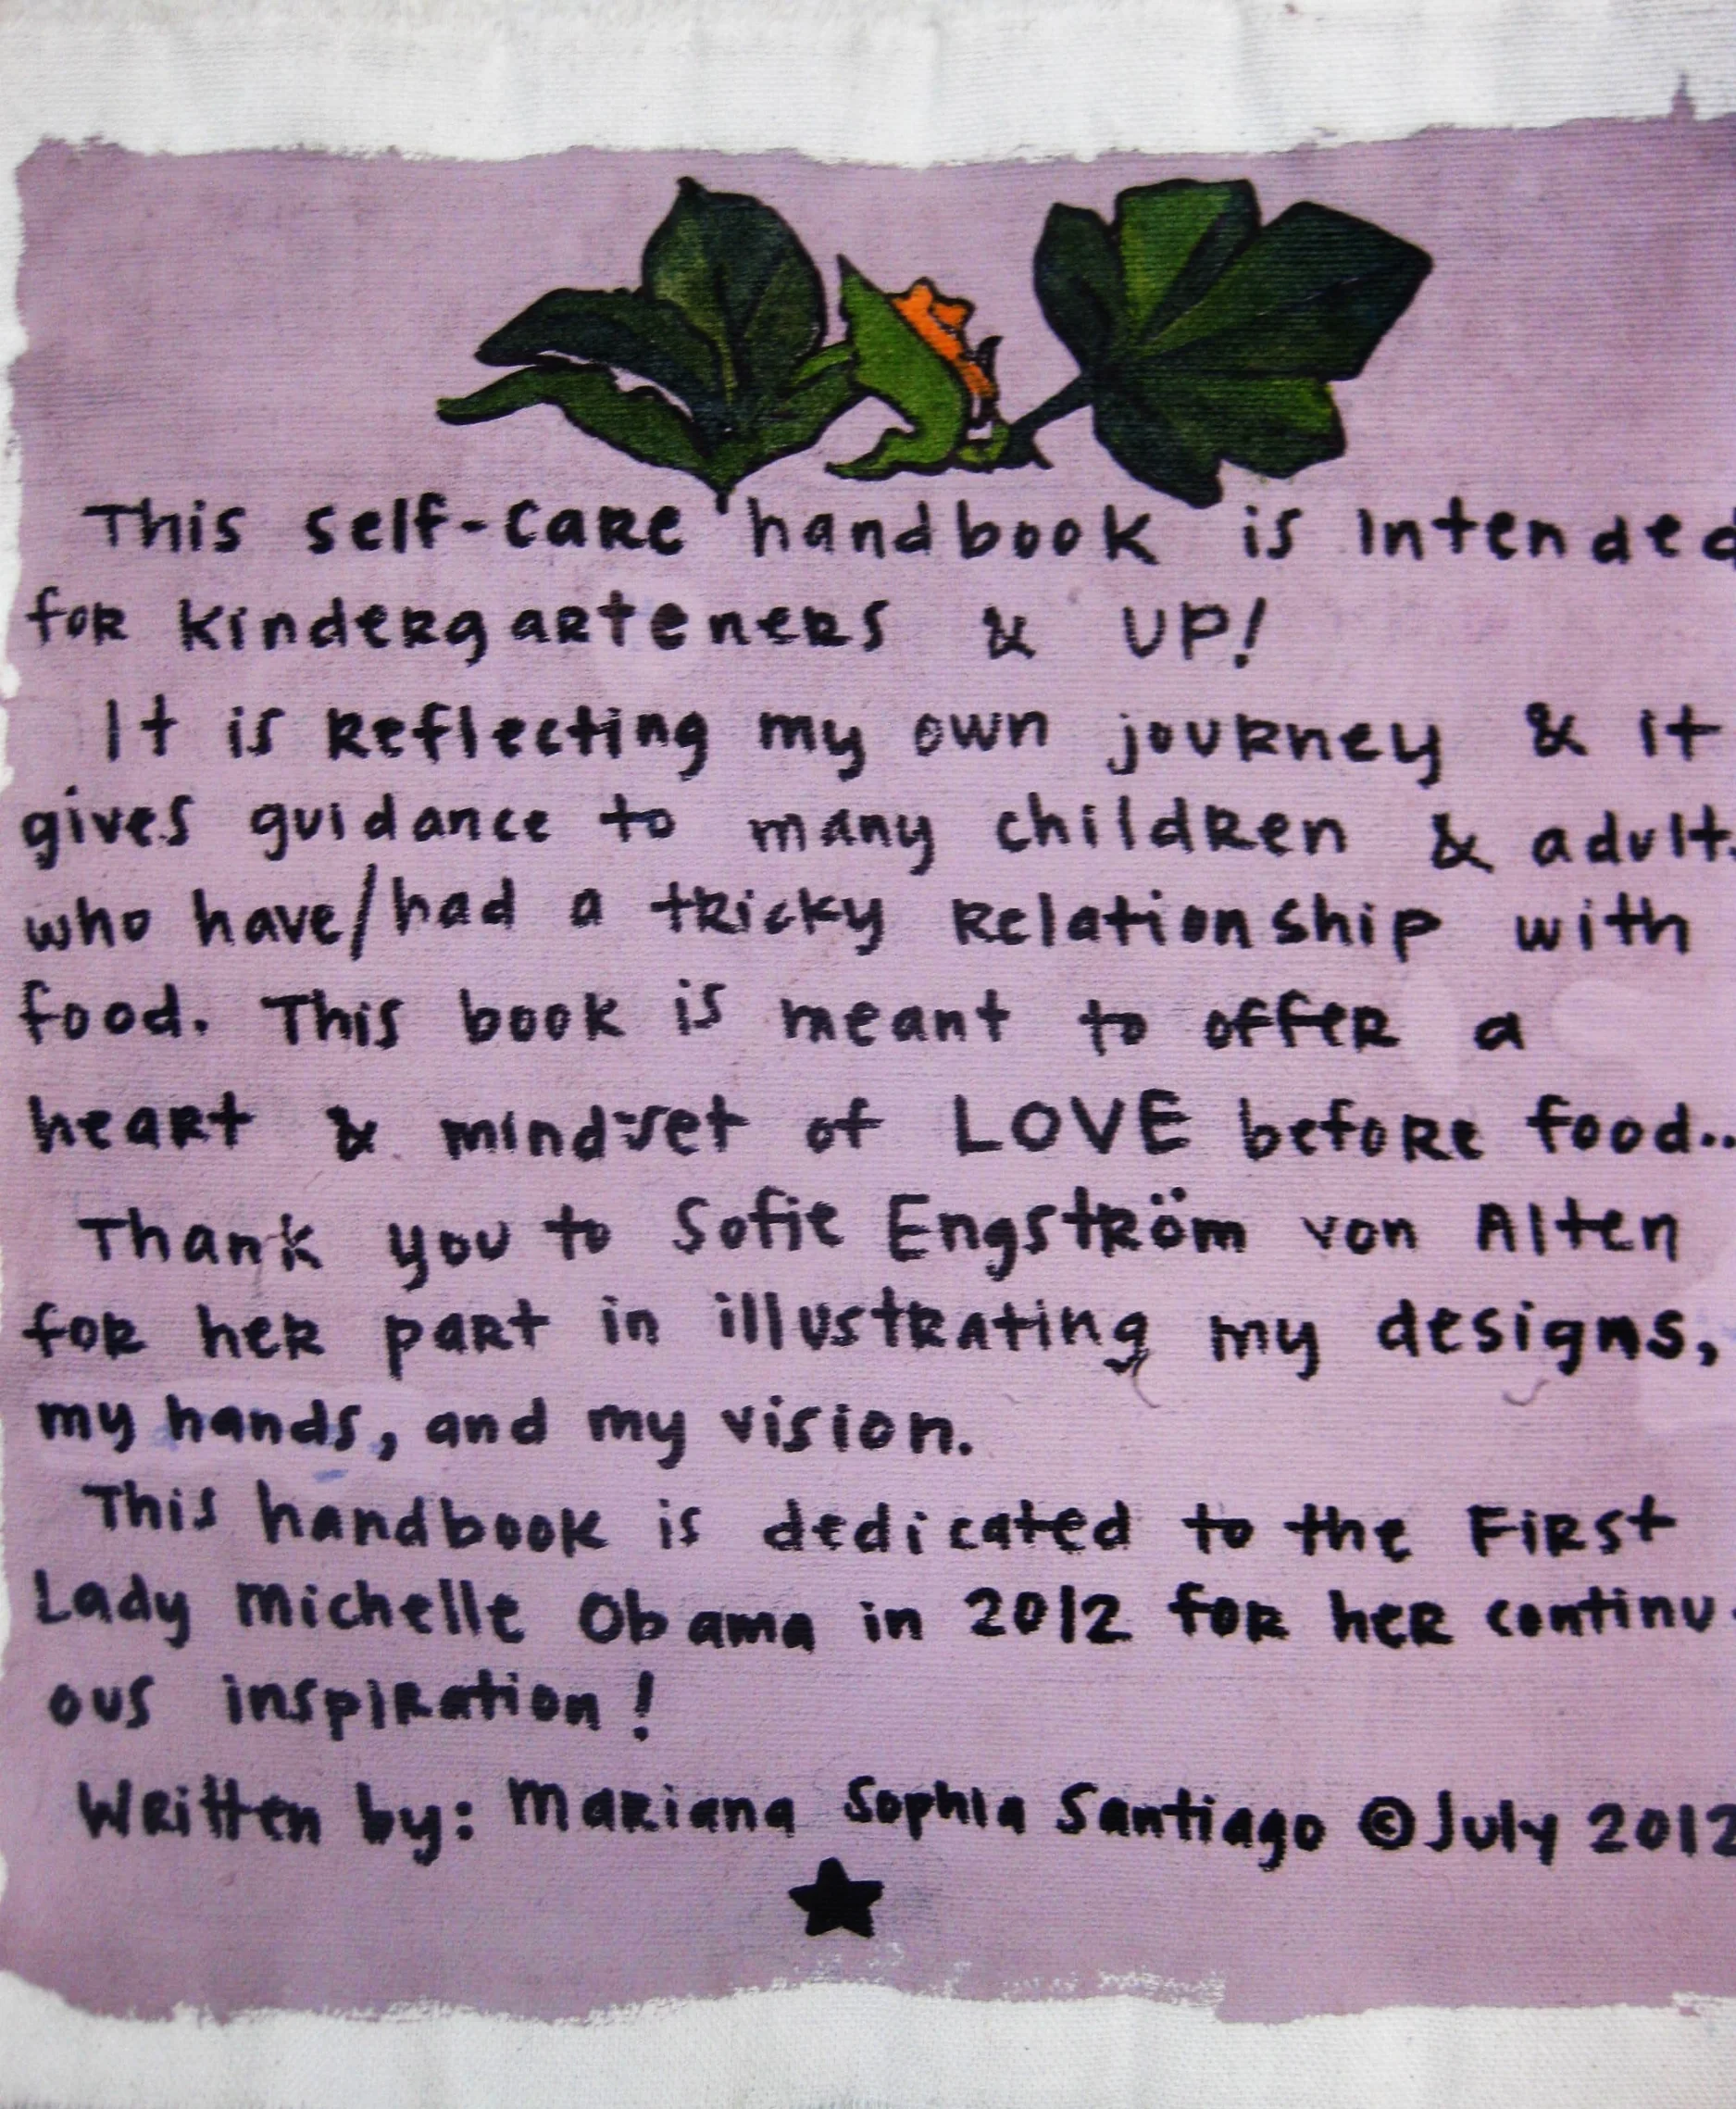 This self-care handbook is intended
for kindergarteners & UP!
It is reflecting my own journey & it
gives guidance to many children & adult
who have/had a tricky relationship with
food. This book is meant to offer a
heart & mind-set of LOVE before food..
Thank you to Sofie Engström von Alten
for her part in illustrating my designs,
my hands, and my vision.
This handbook is dedicated to the First
Lady Michelle Obama in 2012 for her continu
ous inspiration!
Written by: Mariana Sophia Santiago © July 2012